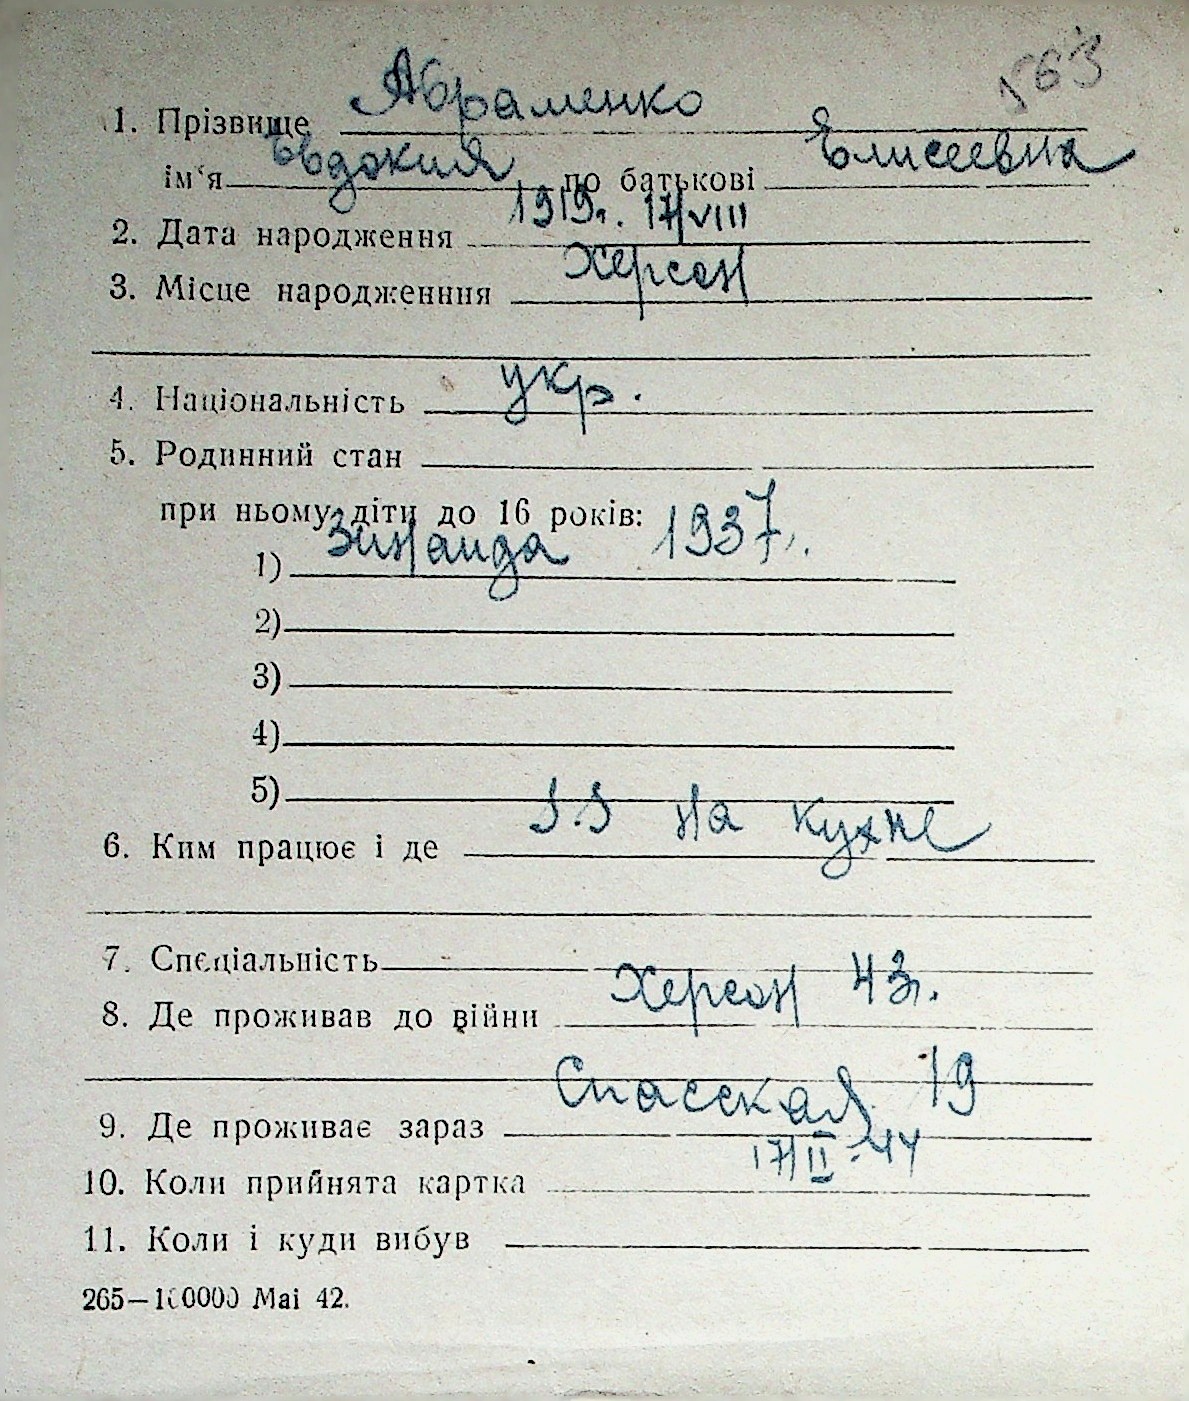 563
1. Прізвище Абраменко
ім'я Евдокия по батькові Елисеевна
2. Дата народження 1919г. 17/VIII
3. Місце народженння Херсон
4. Національність укр.
5. Родинний стан
при ньому діти до 16 років:
1) Зинаида 1937г.
2)
3)
4)
5)
6. Ким працює і де на кухне
7. Спеціальність
8. Де проживав до війни Херсон 43г.
9. Де проживає зараз Спасская 19
10. Коли прийнята картка 17/II-44
11. Коли і куди вибув
265—100000 Маі 42.